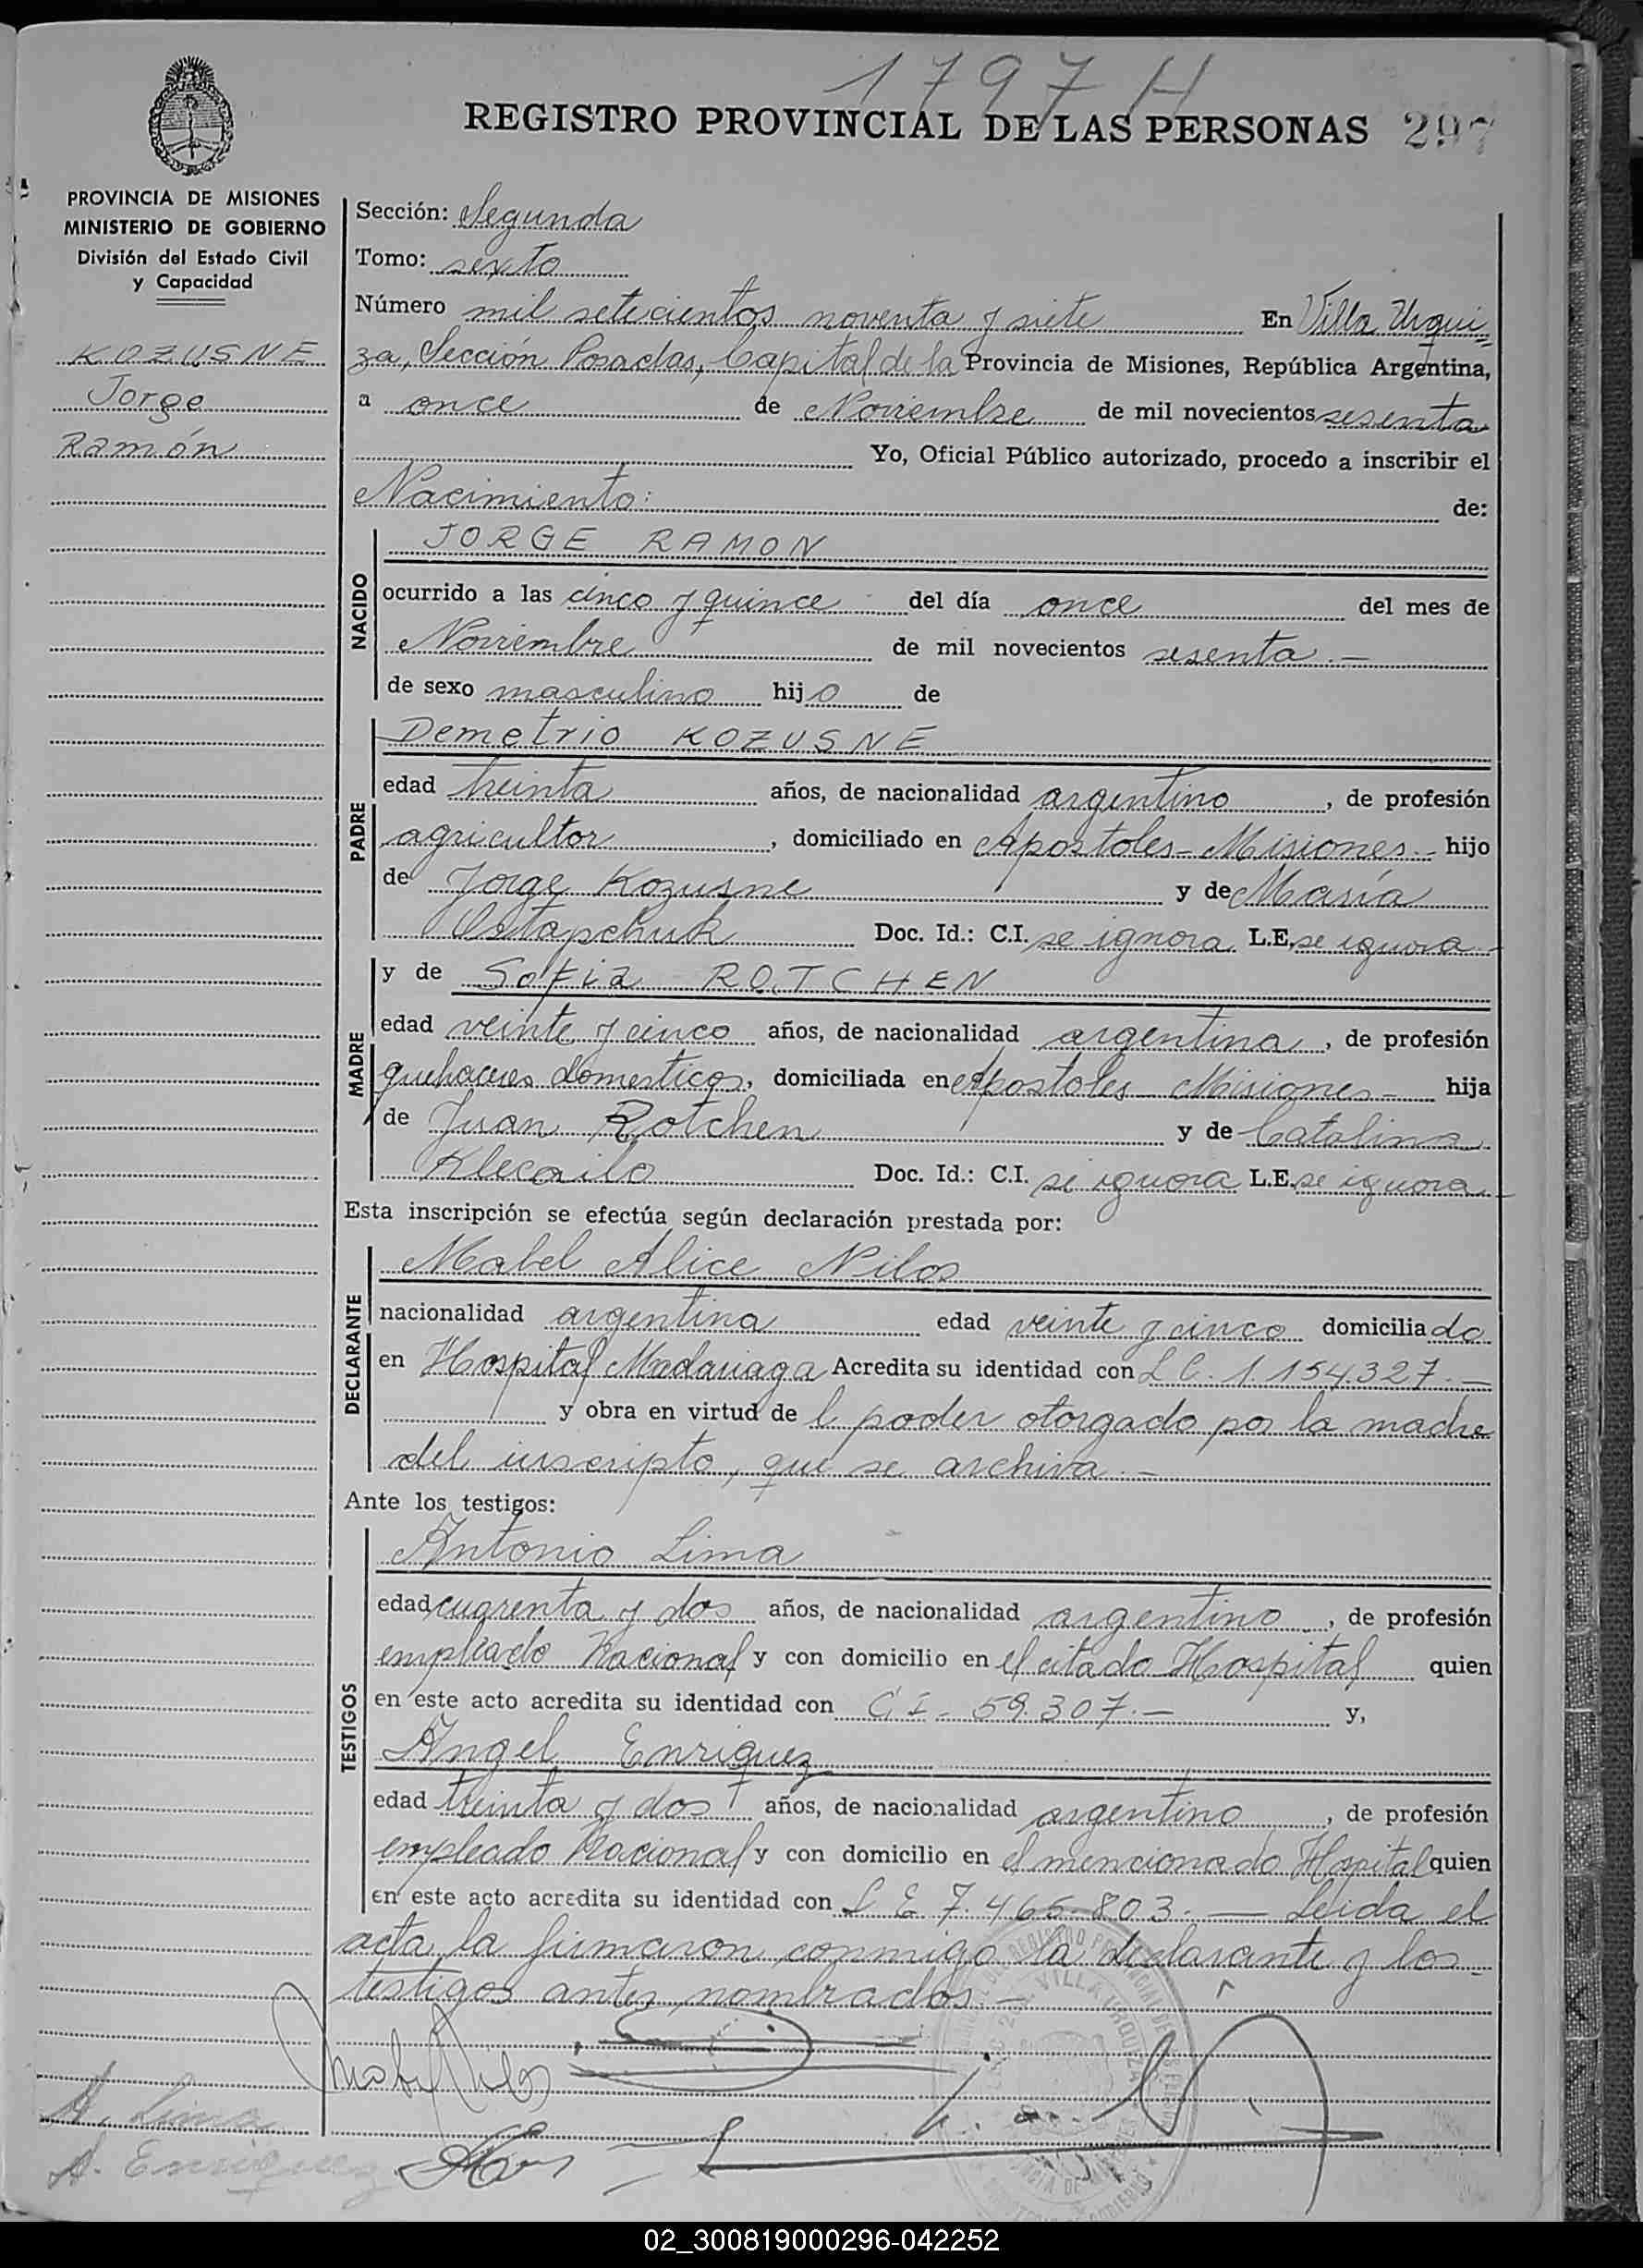 1797 H
REGISTRO PROVINCIAL DE LAS PERSONAS 297
PROVINCIA DE MISIONES
MINISTERIO DE GOBIERNO
División del Estado Civil
y Capacidad
KOZUSNE
Jorge
Ramón
Sección: Segunda
Tomo: sexto
Número mil setecientos noventa y siete En Villa Urqui=
za, Sección Posadas, Capital de la Provincia de Misiones, República Argentina,
a once de Noviembre de mil novecientos sesenta
Yo, Oficial Público autorizado, procedo a inscribir el
Nacimiento: de:
NACIDO
JORGE RAMON
ocurrido a las cinco y quince del día once del mes de
Noviembre de mil novecientos sesenta.-
de sexo masculino hijo de
PADRE
Demetrio KOZUSNE
edad treinta años, de nacionalidad argentino, de profesión
agricultor, domiciliado en Apostoles-Misiones.- hijo
de Jorge Kozusne y de María
Ostapchuk Doc. Id.: C.I. se ignora L.E. se ignora-
MADRE
y de Sofia ROTCHEN
edad veinte y cinco años, de nacionalidad argentina, de profesión
quehaceres domesticos, domiciliada en Apostoles-Misiones- hija
de Juan Rotchen y de Catalina
Klecailo Doc. Id.: C.I. se ignora L.E. se ignora-
Esta inscripción se efectúa según declaración prestada por:
DECLARANTE
Mabel Alice Nilos
nacionalidad argentina edad veinte y cinco domiciliada
en Hospital Madariaga Acredita su identidad con L C. 1.154.327.-
y obra en virtud de l poder otorgado por la madre
del inscripto, que se archiva.-
Ante los testigos:
TESTIGOS
Antonio Lima
edad cuarenta y dos años, de nacionalidad argentino, de profesión
empleado Nacional y con domicilio en el citado Hospital quien
en este acto acredita su identidad con C. I - 59.307.- y,
Angel Enriquez
edad treinta y dos años, de nacionalidad argentino, de profesión
empleado Nacional y con domicilio en el mencionado Hospital quien
en este acto acredita su identidad con L E 7.465.803.- Leida el
acta la firmaron conmigo la declarante y los
testigos antes nombrados.-
Mabel Nilos
A. Lima
A. Enriquez
02_300819000296-042252